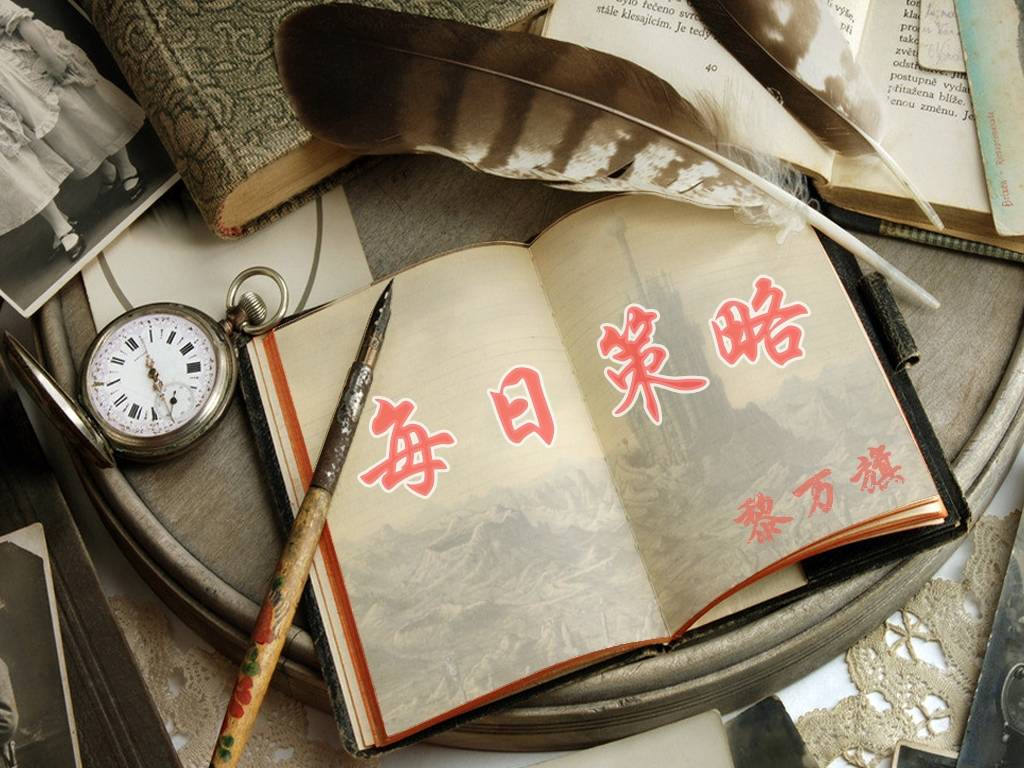 每日策略
黎万旗
řečeno
stále klesajícím. Je tedy
40
výše,
postupně vydá
přitažena blíže.
enou změnu. Je